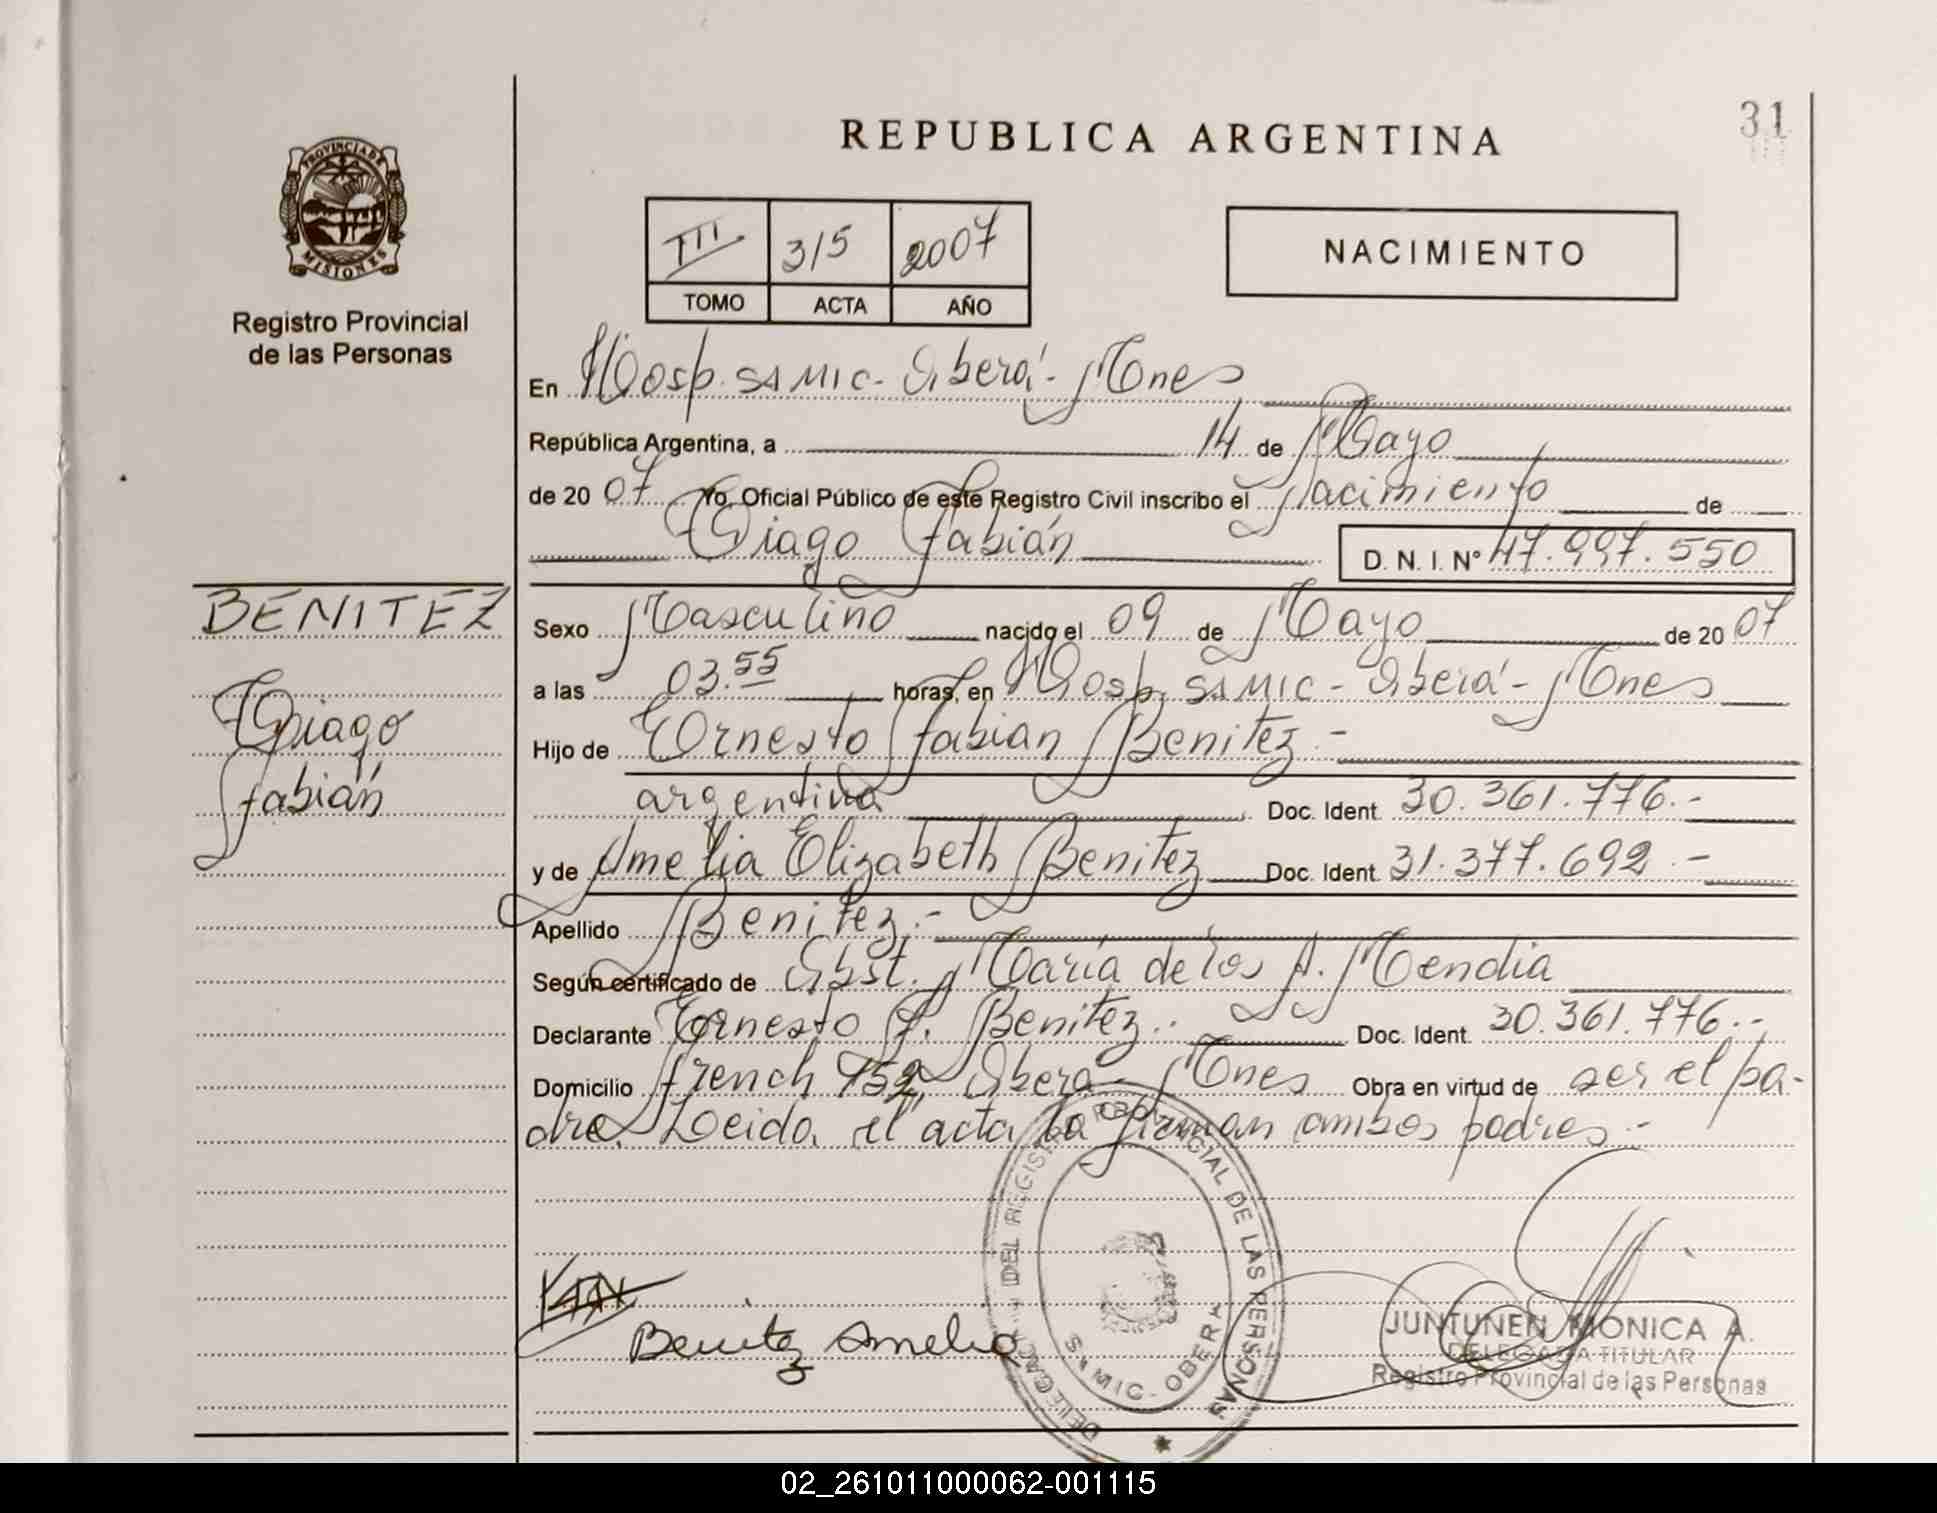 31
REPUBLICA ARGENTINA
PROVINCIA DE
MISIONES
Registro Provincial
de las Personas
III 315 2007
TOMO ACTA AÑO
NACIMIENTO
En Hosp. SAMIC - Oberá - Mnes
República Argentina, a 14 de Mayo
de 20 07 Yo, Oficial Público de este Registro Civil inscribo el Nacimiento de
Thiago Fabián D. N. I. N° 47.997.550
BENITEZ
Thiago
Fabián
Sexo Masculino nacido el 09 de Mayo de 20 07
a las 03.55 horas, en Hosp. SAMIC - Oberá - Mnes
Hijo de Ernesto Fabian Benitez.-
argentina Doc. Ident. 30.361.776.-
y de Amelia Elizabeth Benitez Doc. Ident. 31.377.692.-
Apellido Benitez.-
Según certificado de Obst. María de los A. Mendia
Declarante Ernesto F. Benitez.. Doc. Ident. 30.361.776.-
Domicilio French 952, Oberá - Mnes Obra en virtud de ser el pa-
dre. Leida el acta la firman ambos padres.-
DELEGACION DEL REGISTRO PROVINCIAL DE LAS PERSONAS
SAMIC - OBERA
Benitez Amelia
JUNTUNEN MONICA A.
DELEGADA TITULAR
Registro Provincial de las Personas
02_261011000062-001115